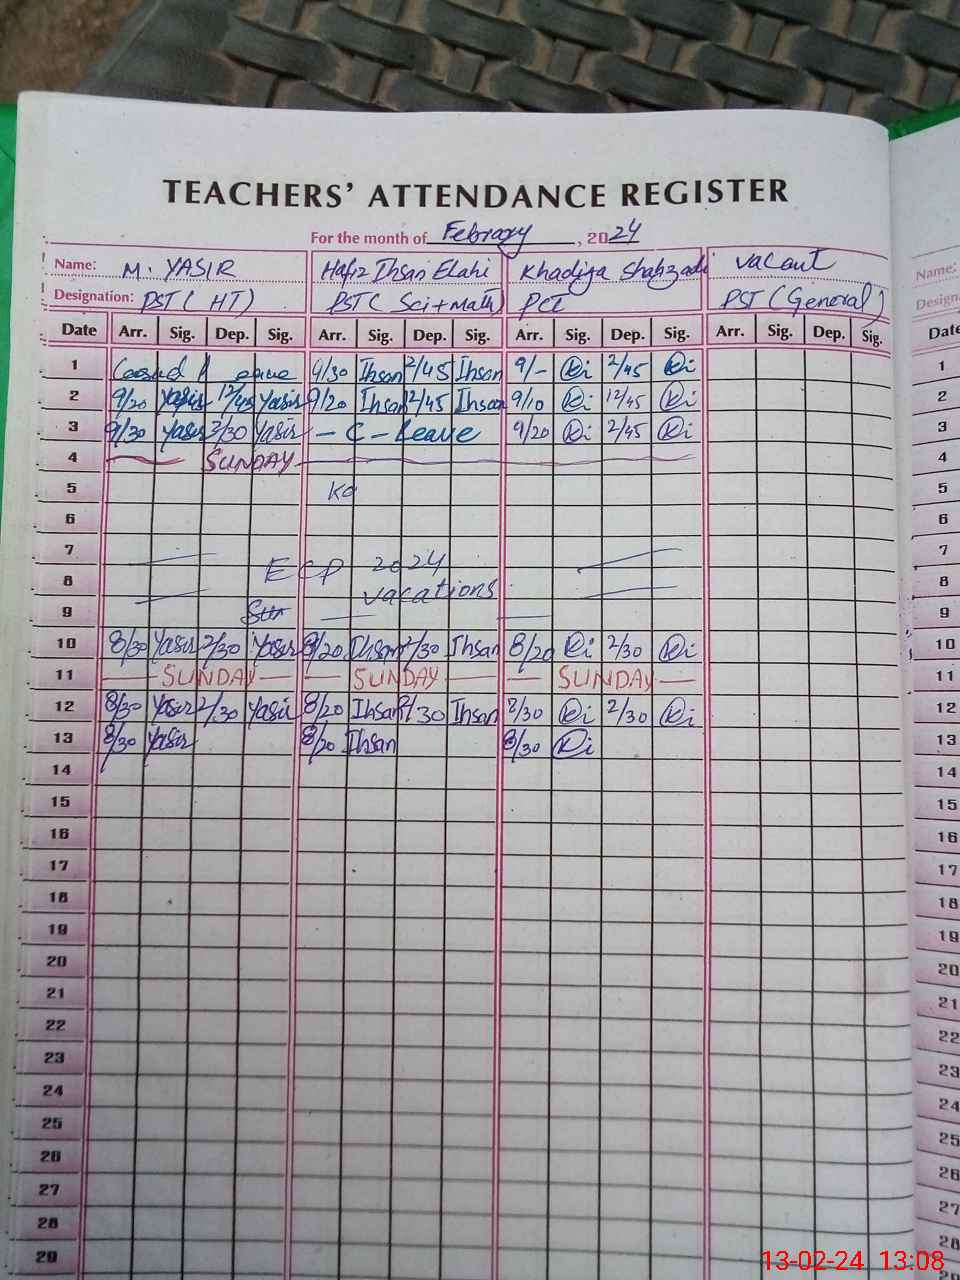 TEACHERS' ATTENDANCE REGISTER
For the month of February, 2024
Name: M. YASIR Hafiz Ihsan Elahi Khadija Shahzadi Vacant Name:
Designation: PST (HT) PST (Sci+Math) PCT PST (General)
Date Arr. Sig. Dep. Sig. Arr. Sig. Dep. Sig. Arr. Sig. Dep. Sig. Arr. Sig. Dep. Sig. Date
1 9/30 Ihsan 2/45 Ihsan 9/- 2/45 1
2 9/20 Yasir 12/45 Yasir 9/20 Ihsan 12/45 Ihsan 9/10 12/45 2
3 9/30 Yasir 2/30 Yasir - C - Leave 9/20 2/45 3
4 SUNDAY 4
5 5
6 6
7 7
8 ECP 2024 8
vacations
9 9
10 8/30 Yasir 2/30 Yasir 8/20 Ihsan 2/30 Ihsan 8/20 2/30 10
11 SUNDAY SUNDAY SUNDAY 11
12 8/30 Yasir 2/30 Yasir 8/20 Ihsan 2/30 Ihsan 8/30 2/30 12
13 8/30 Yasir 8/20 Ihsan 8/30 13
14 14
15 15
16 16
17 17
18 18
19 19
20 20
21 21
22 22
23 23
24 24
25 25
26 26
27 27
28 28
29
13-02-24 13:08